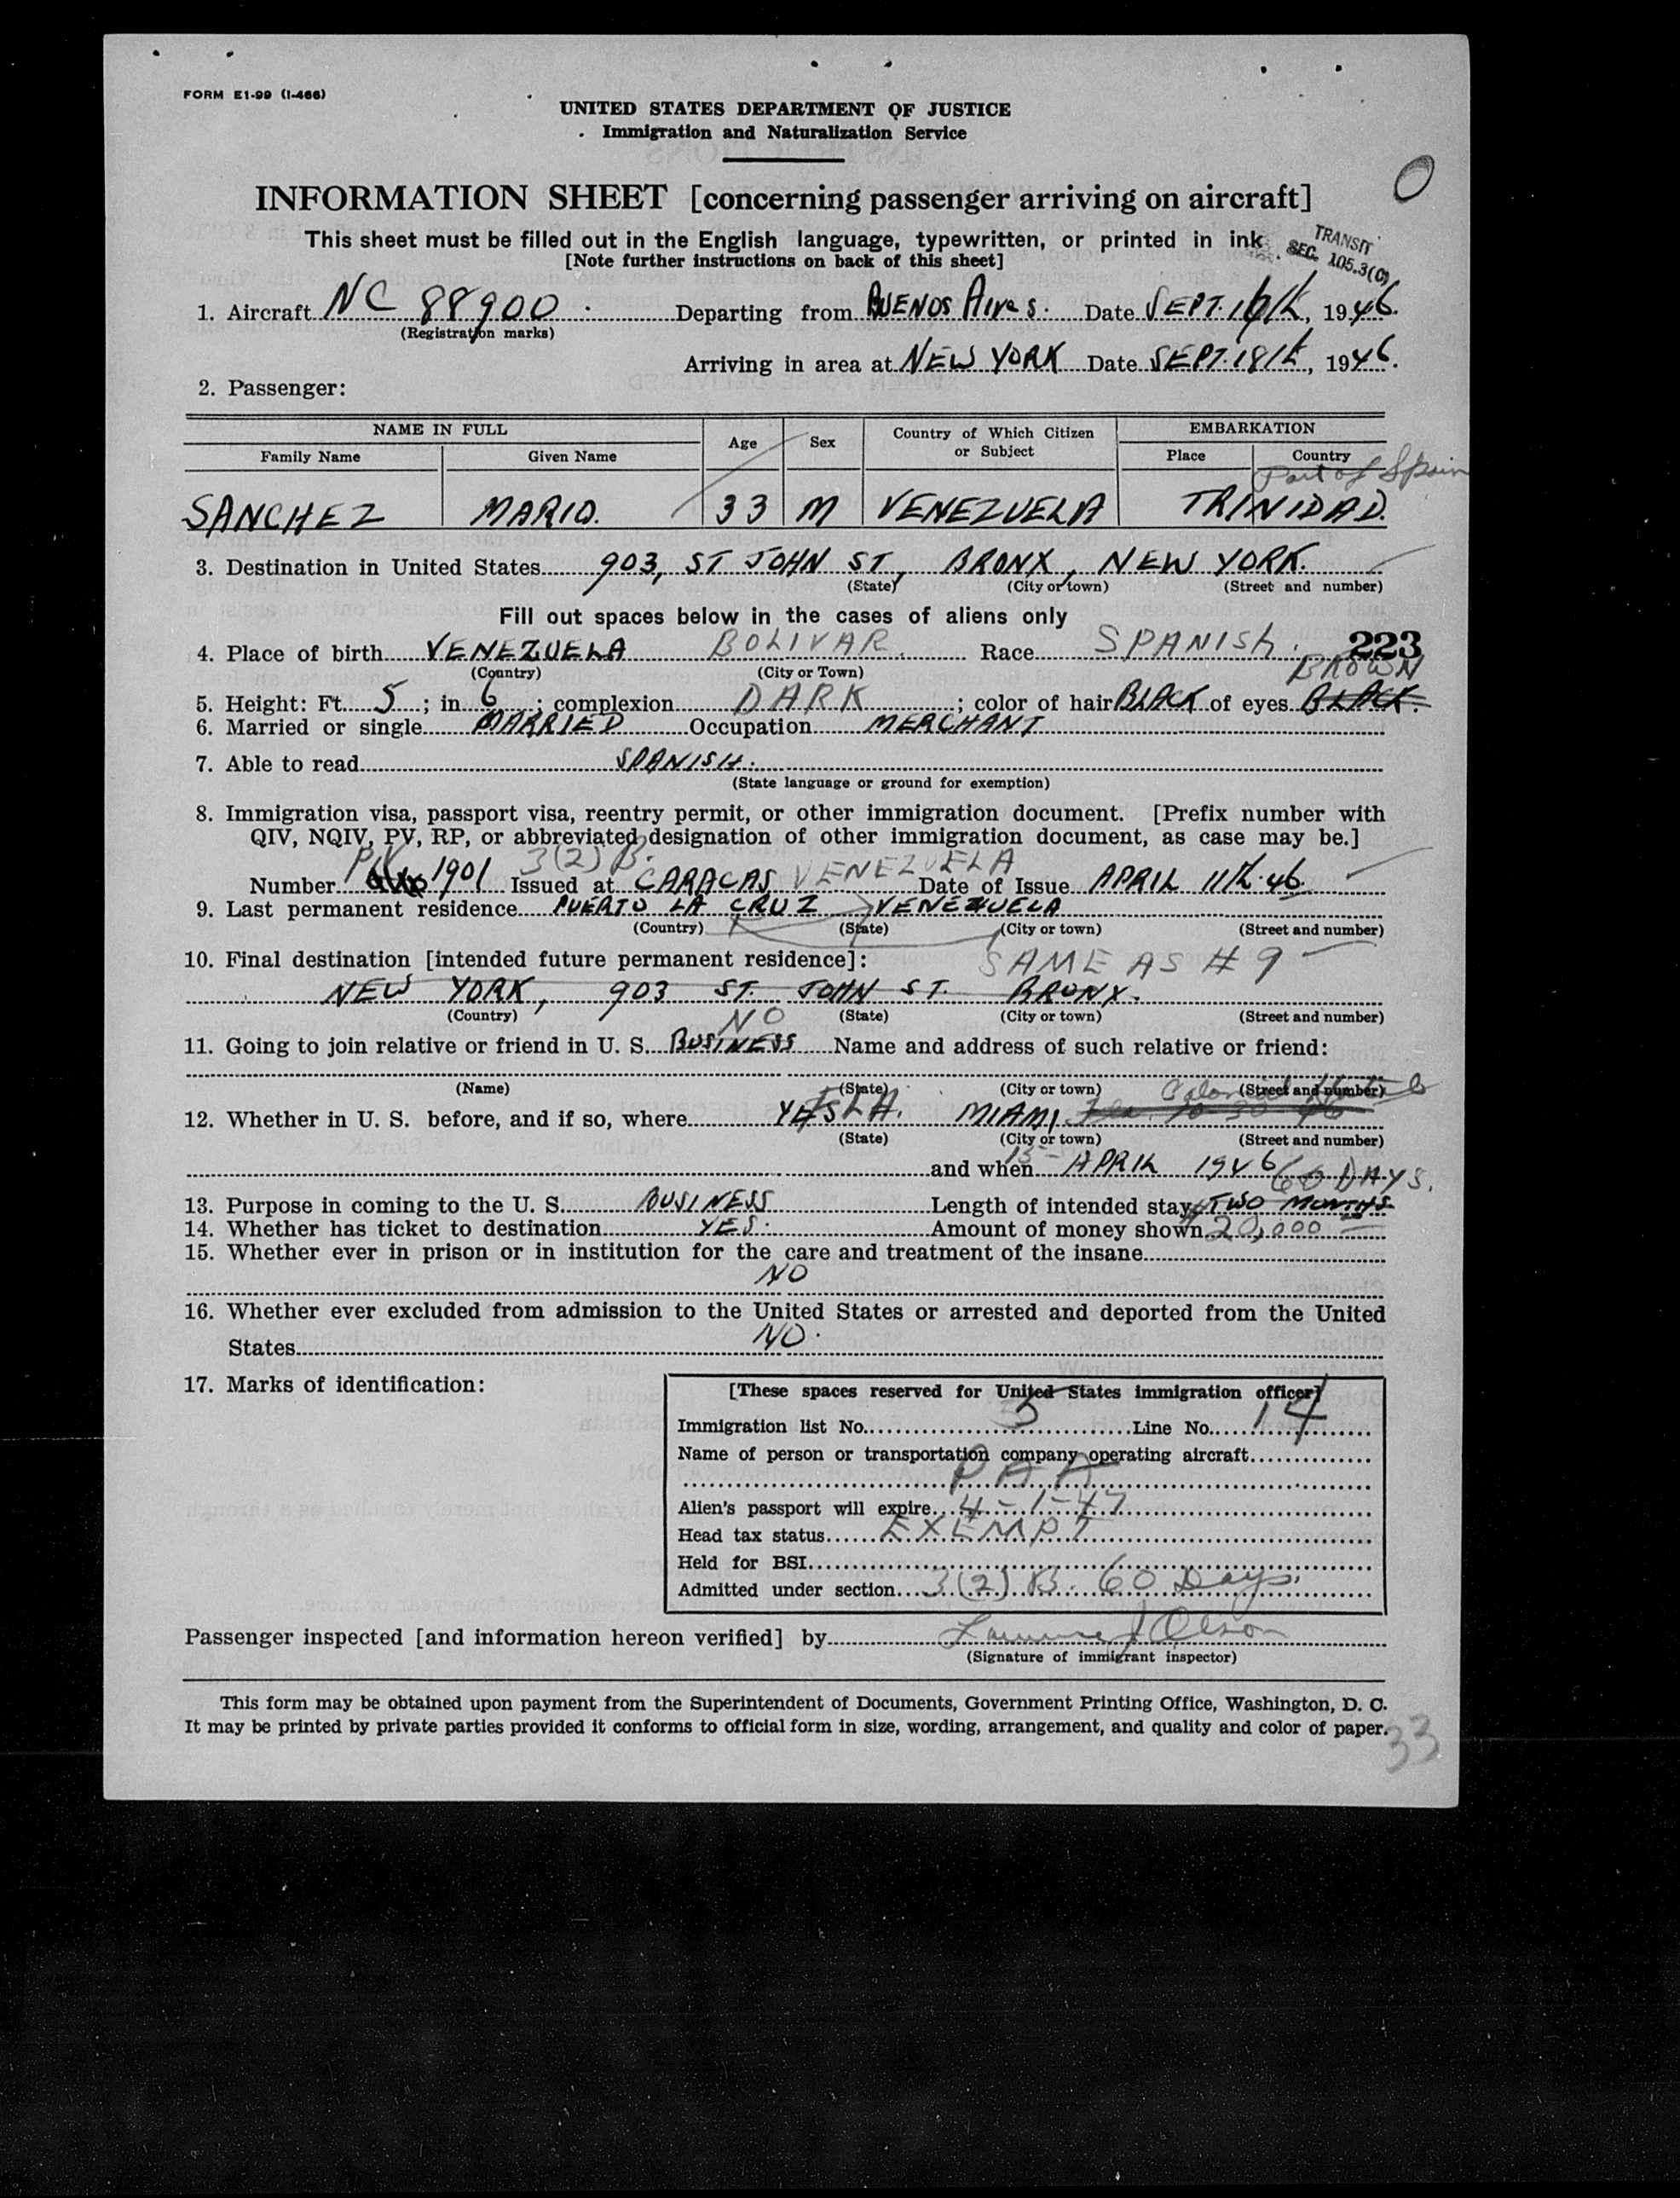 FORM E1-99 (I-466)
UNITED STATES DEPARTMENT OF JUSTICE
Immigration and Naturalization Service
INFORMATION SHEET [concerning passenger arriving on aircraft]
This sheet must be filled out in the English language, typewritten, or printed in ink.
[Note further instructions on back of this sheet]
TRANSIT
SEC. 105.3(C)
1. Aircraft NC 88900 Departing from BUENOS AIRES. Date SEPT. 16th, 1946.
(Registration marks)
Arriving in area at NEW YORK Date SEPT. 18th, 1946.
2. Passenger:
NAME IN FULL Age Sex Country of Which Citizen or Subject EMBARKATION
Family Name Given Name Place Country
Port of Spain
SANCHEZ MARIO. 33 M VENEZUELA TRINIDAD.
3. Destination in United States 903, ST JOHN ST, BRONX, NEW YORK.
(State) (City or town) (Street and number)
Fill out spaces below in the cases of aliens only
4. Place of birth VENEZUELA BOLIVAR. Race SPANISH. 223
(Country) (City or Town) BROWN
5. Height: Ft. 5; in 6; complexion DARK; color of hair BLACK of eyes BLACK.
6. Married or single MARRIED Occupation MERCHANT
7. Able to read SPANISH.
(State language or ground for exemption)
8. Immigration visa, passport visa, reentry permit, or other immigration document. [Prefix number with
QIV, NQIV, PV, RP, or abbreviated designation of other immigration document, as case may be.]
3(2) B.
Number PV 1901 Issued at CARACAS VENEZUELA Date of Issue APRIL 11th 46.
9. Last permanent residence PUERTO LA CRUZ VENEZUELA
(Country) (State) (City or town) (Street and number)
10. Final destination [intended future permanent residence]: SAME AS #9
NEW YORK, 903 ST. JOHN ST. BRONX.
(Country) (State) (City or town) (Street and number)
NO
11. Going to join relative or friend in U. S. BUSINESS Name and address of such relative or friend:
(Name) (State) (City or town) (Street and number)
12. Whether in U. S. before, and if so, where YES FLA. MIAMI,
(State) (City or town) (Street and number)
and when 15 APRIL 1946 60 DAYS.
13. Purpose in coming to the U. S. BUSINESS Length of intended stay TWO MONTHS
14. Whether has ticket to destination YES. Amount of money shown $20,000
15. Whether ever in prison or in institution for the care and treatment of the insane
NO
16. Whether ever excluded from admission to the United States or arrested and deported from the United
States NO.
17. Marks of identification:
[These spaces reserved for United States immigration officer]
Immigration list No. 3 Line No. 14
Name of person or transportation company operating aircraft
PAA
Alien's passport will expire 4-1-47
Head tax status EXEMPT
Held for BSI
Admitted under section 3(2) B. 60 Days.
Passenger inspected [and information hereon verified] by J Olson
(Signature of immigrant inspector)
This form may be obtained upon payment from the Superintendent of Documents, Government Printing Office, Washington, D. C.
It may be printed by private parties provided it conforms to official form in size, wording, arrangement, and quality and color of paper.
33